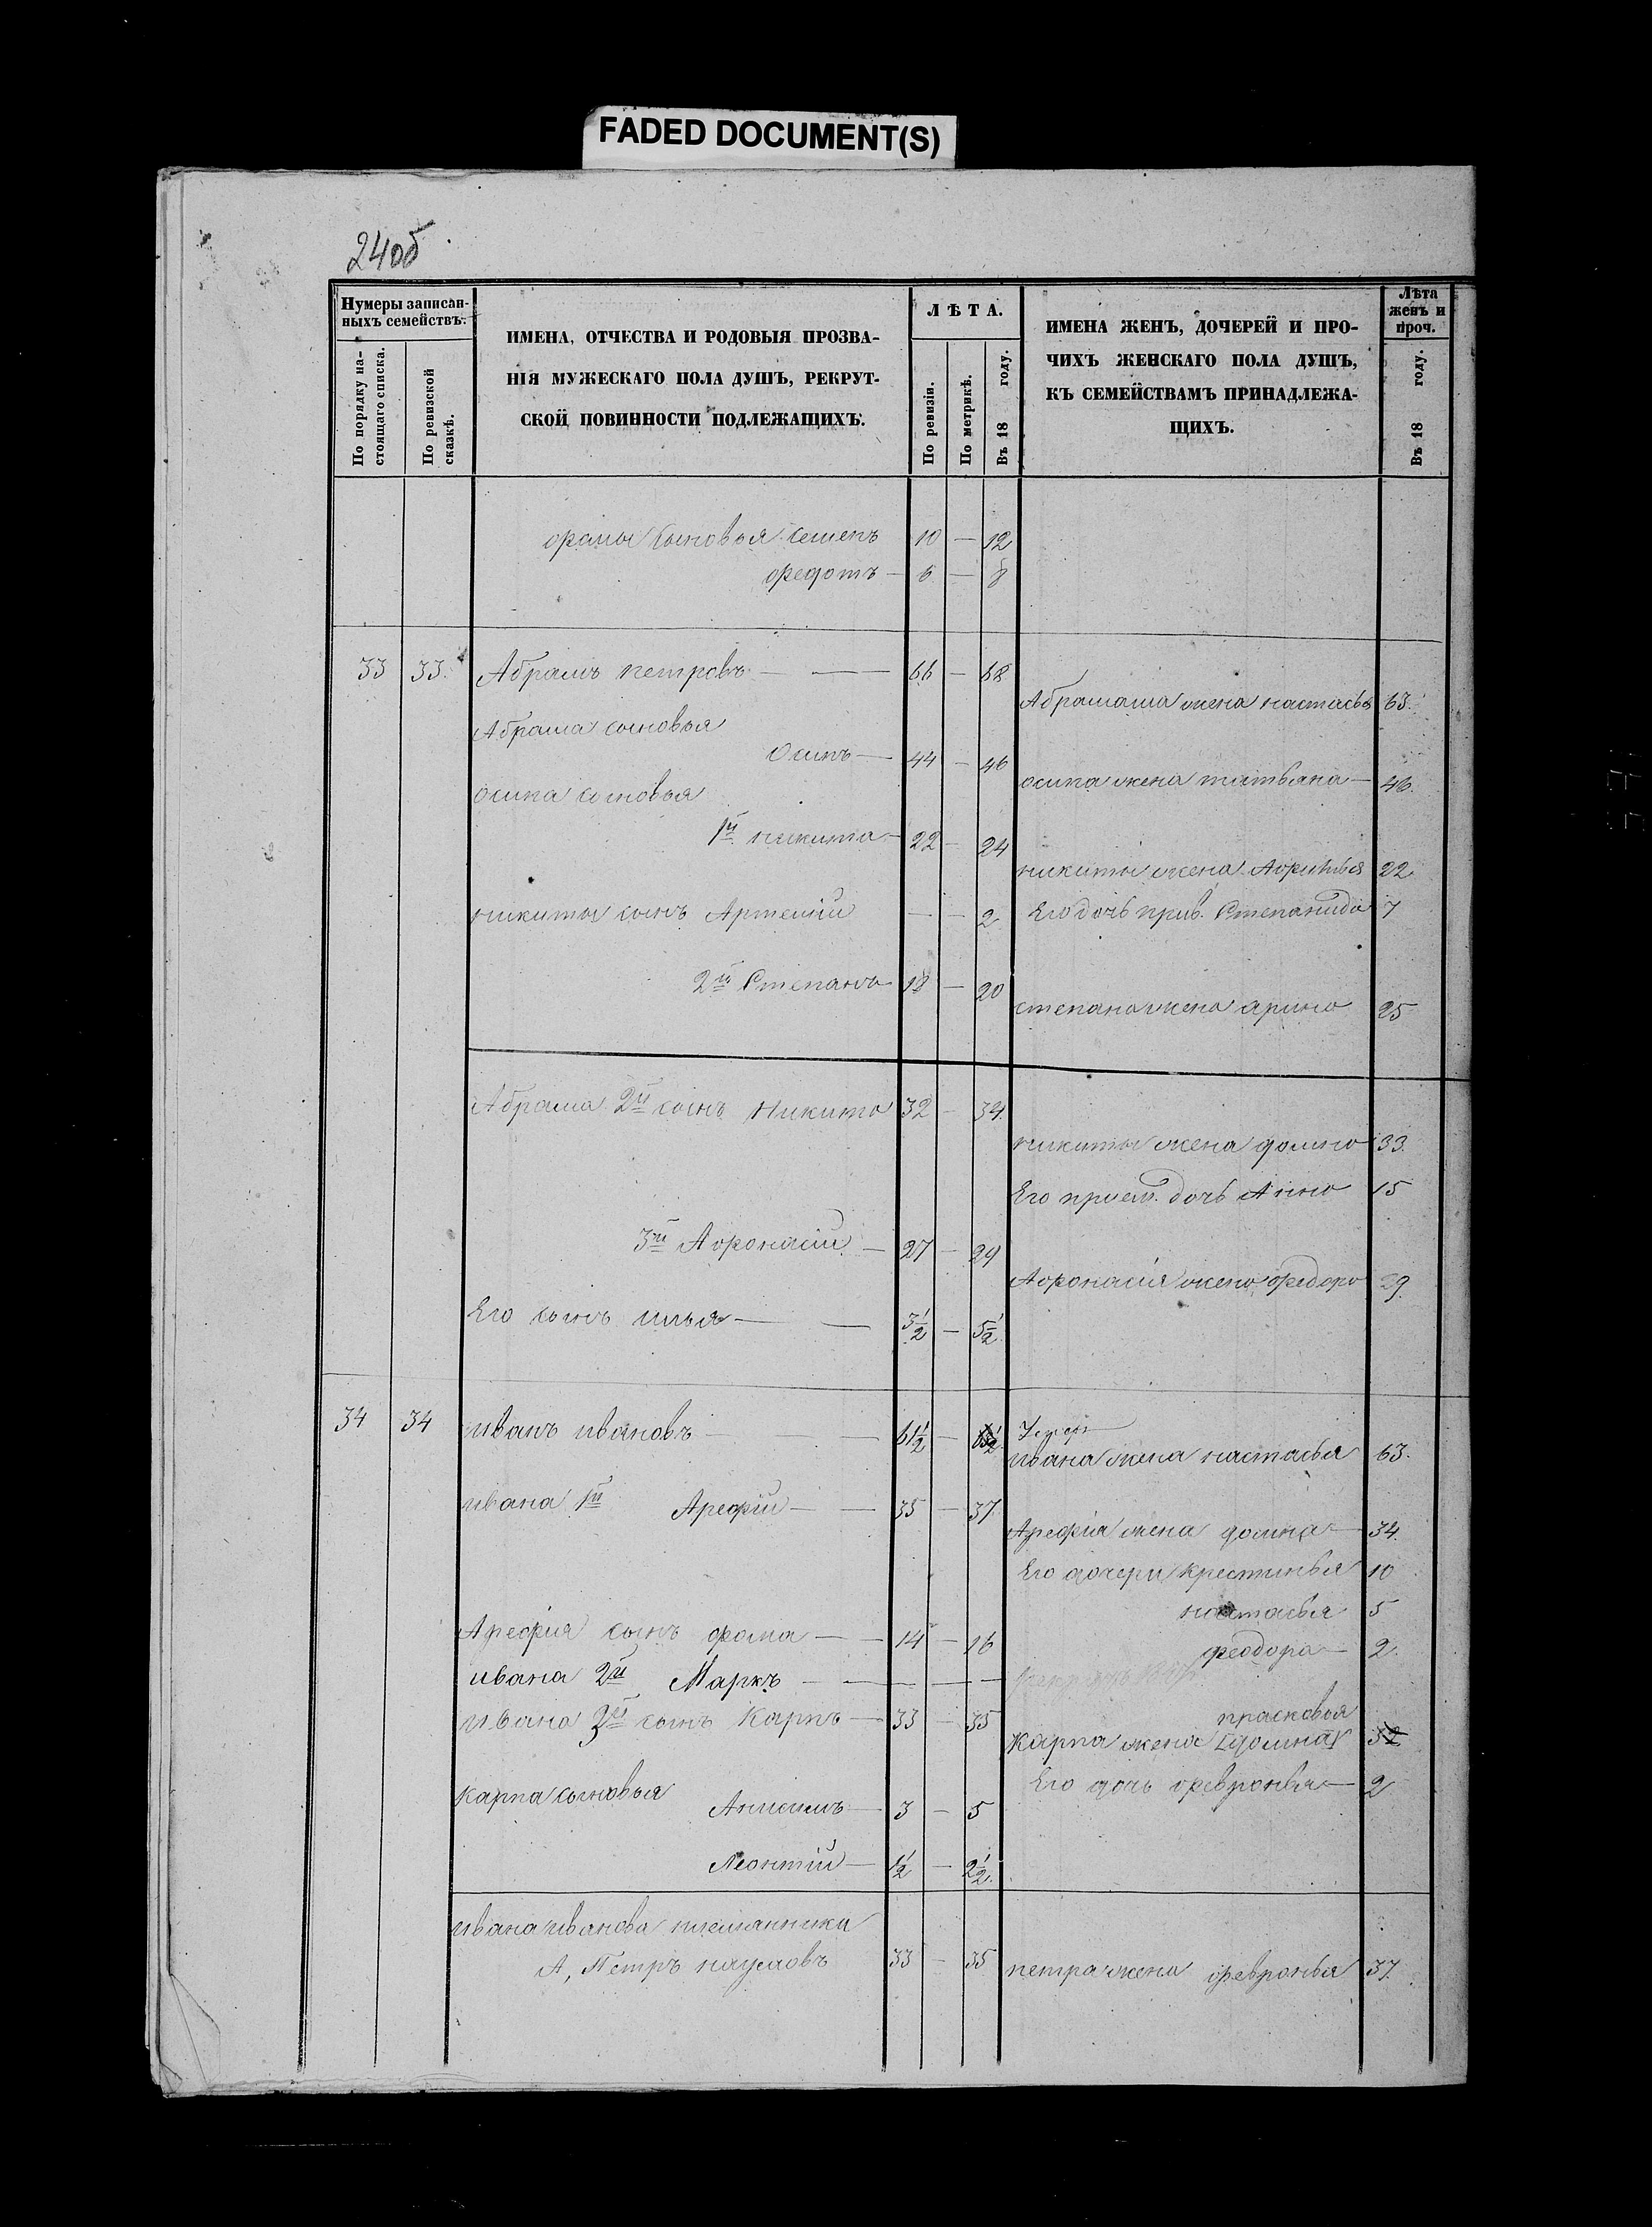 FADED DOCUMENT(S)
24об
Нумеры записан-
ныхъ семействъ.
По порядку на-
стоящаго списка.
По ревизской
сказкѣ.
ИМЕНА, ОТЧЕСТВА И РОДОВЫЯ ПРОЗВА-
НІЯ МУЖЕСКАГО ПОЛА ДУШЪ, РЕКРУТ-
СКОЙ ПОВИННОСТИ ПОДЛЕЖАЩИХЪ.
ЛѢТА.
По ревизіи.
По метрикѣ.
Въ 18 году.
ИМЕНА ЖЕНЪ, ДОЧЕРЕЙ И ПРО-
ЧИХЪ ЖЕНСКАГО ПОЛА ДУШЪ,
КЪ СЕМЕЙСТВАМЪ ПРИНАДЛЕЖА-
ЩИХЪ.
Лѣта
женъ и
проч.
Въ 18 году.
фомы сыновья Семенъ 10 — 12
федотъ — 6 — 8
33 33. Абрамъ петровъ — — 66 — 68
Абрама жена настасья 63.
Абрама сыновья
Осипъ — 44 — 46
осипа жена татьяна — 46.
осипа сыновья
1й никита — 22 — 24
никиты жена Афимья 22
никиты сынъ Артемій — — 2 Его дочь прив. Степанида 7
2й Степанъ 18 — 20
степана жена арина 25
Абрама 2й сынъ Никита 32 — 34.
никиты жена домна 33.
Его прием. дочь Анна 15
3й Афонасій — 27 — 29
Афонасія жена федора 29.
Его сынъ илья — — 3½ — 5½
34 34 иванъ ивановъ — — 61½ — 63½
ивана жена настасья 63.
ивана 1й Арефій — — 35 — 37
Арефія жена домна — 34.
Его дочери крестинья 10
настасья 5
Арефия сынъ фома — — 14 — 16
феодора — 2.
ивана 2й Маркъ — — — —
ивана 3й сынъ Карпъ — 33 — 35
прасковья
Карпа жена [домна] 32
Его дочь февронья — 2
Карпа сыновья
Анисимъ — 3 — 5
Леонтій — 1½ — 2½.
ивана иванова племянники
А, Петръ наумовъ 33 — 35 петра жена февронья 37.